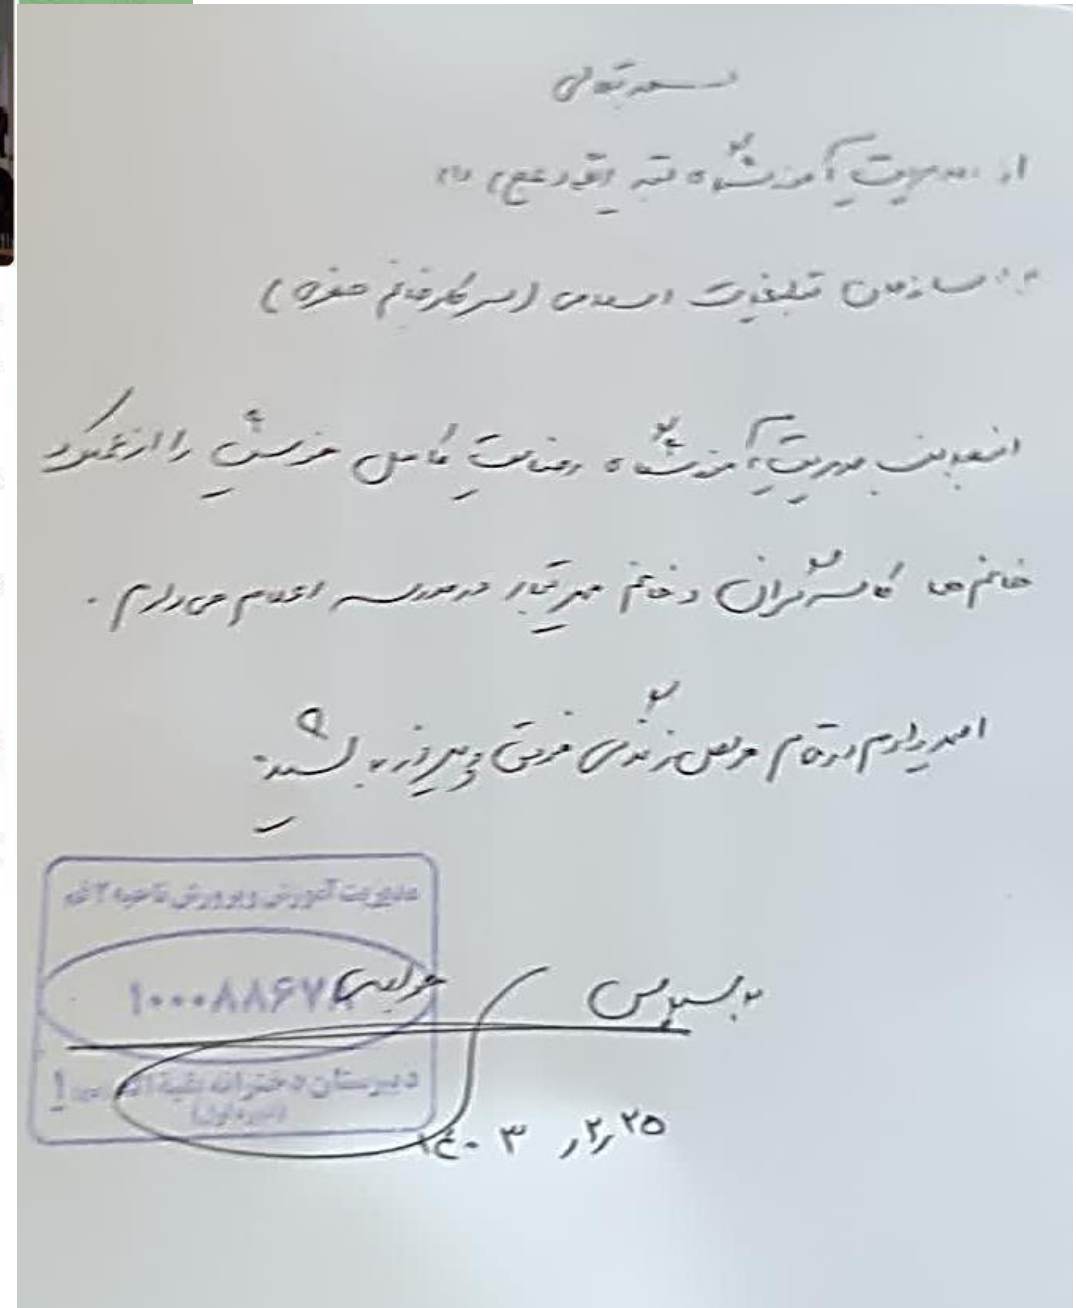 بسمه تعالی
از مدیریت آموزشگاه بقیه الله اعظم (۱)
به: سازمان تبلیغات اسلامی (سرکار خانم صفری)
اینجانب مدیریت آموزشگاه رضایت کامل خویش را از عملکرد
خانم ها و خانم مهرتبار در مدرسه اعلام می دارم.
امیدوارم در تمام مراحل زندگی موفق و پیروز باشید.
مدیریت آموزش و پرورش ناحیه ۲ قم
۱۰۰۰۸۸۶۷۸
دبیرستان دخترانه بقیة الله ۱
(دوره اول)
با سپاس
۱۴۰۳/۲/۲۵